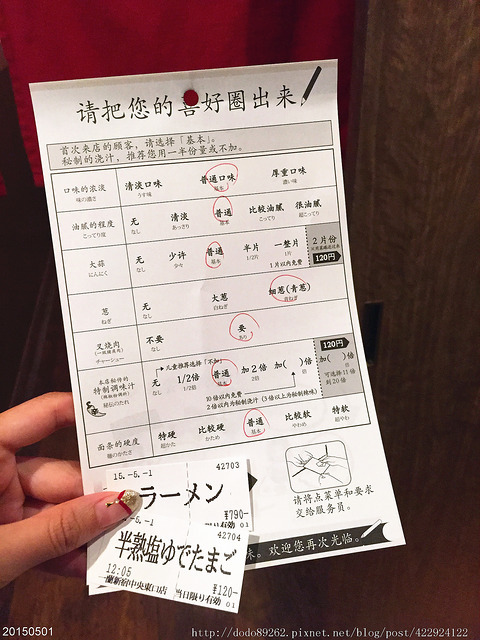 请把您的喜好圈出来
首次来店的顾客，请选择「基本」。
秘制的浇汁，推荐您用一半份量或不加。
口味的浓淡 清淡口味 普通口味 厚重口味
味の濃さ うす味 基本 濃い味
油腻的程度 无 清淡 普通 比较油腻 很油腻
こってり度 なし あっさり 基本 こってり 超こってり
大蒜 无 少许 普通 半片 一整片 2片份
にんにく なし 少々 基本 1/2片 1片
1片以内免费 120円
葱 无 大葱 细葱(青葱)
ねぎ なし 白ねぎ 青ねぎ
叉烧肉 不要 要
チャーシュー なし あり
120円
儿童推荐选择「不加」
本店秘传的
特制调味汁 无 1/2倍 普通 加2倍 加( )倍 加( )倍
秘伝のたれ なし 1/2倍 基本 2倍
可选择11倍
到20倍
10倍以内免费
2倍以内为秘制浇汁 (3倍以上为秘制辣味)
面条的硬度 特硬 比较硬 普通 比较软 特软
麺のかたさ 超かた かため 基本 やわめ 超やわ
请将点菜单和要求
交给服务员。
15.-5.-1 42703
ラーメン
¥790-
01
-5.-1 42704
半熟塩ゆでたまご
12:05 ¥120-
蘭新宿中央東口店 当日限り有効 01
来。欢迎您再次光临。
20150501
http://dodo89262.pixnet.net/blog/post/422924122